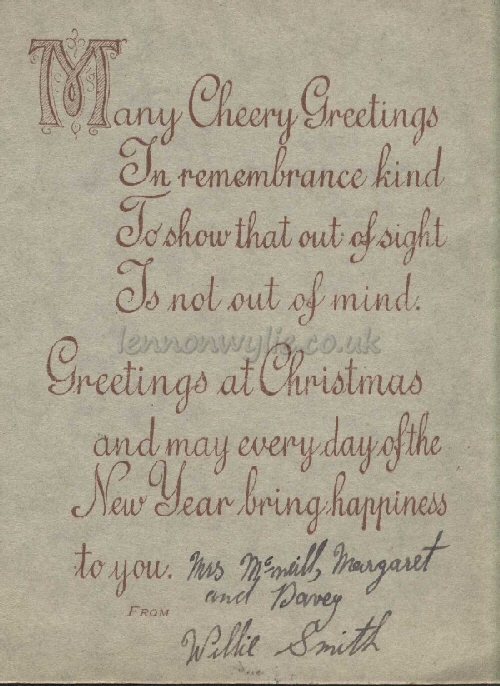 Many Cheery Greetings
In remembrance kind
To show that out of sight
Is not out of mind.
lennonwylie.co.uk
Greetings at Christmas
and may every day of the
New Year bring happiness
to you. Mrs McNeill, Margaret
and Davey
FROM
Willie Smith